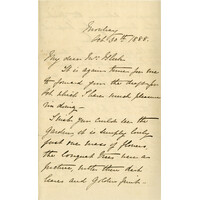 Oct 30th, 1888.
My dear Mr.
It is again time for me
to forward you the
for which I have much pleasure
in doing.
I wish you could see the
Gardens, it is simply lovely
just one mass of flowers
the Loquat Trees are a
picture, with their dark
leaves and Golden fruit.